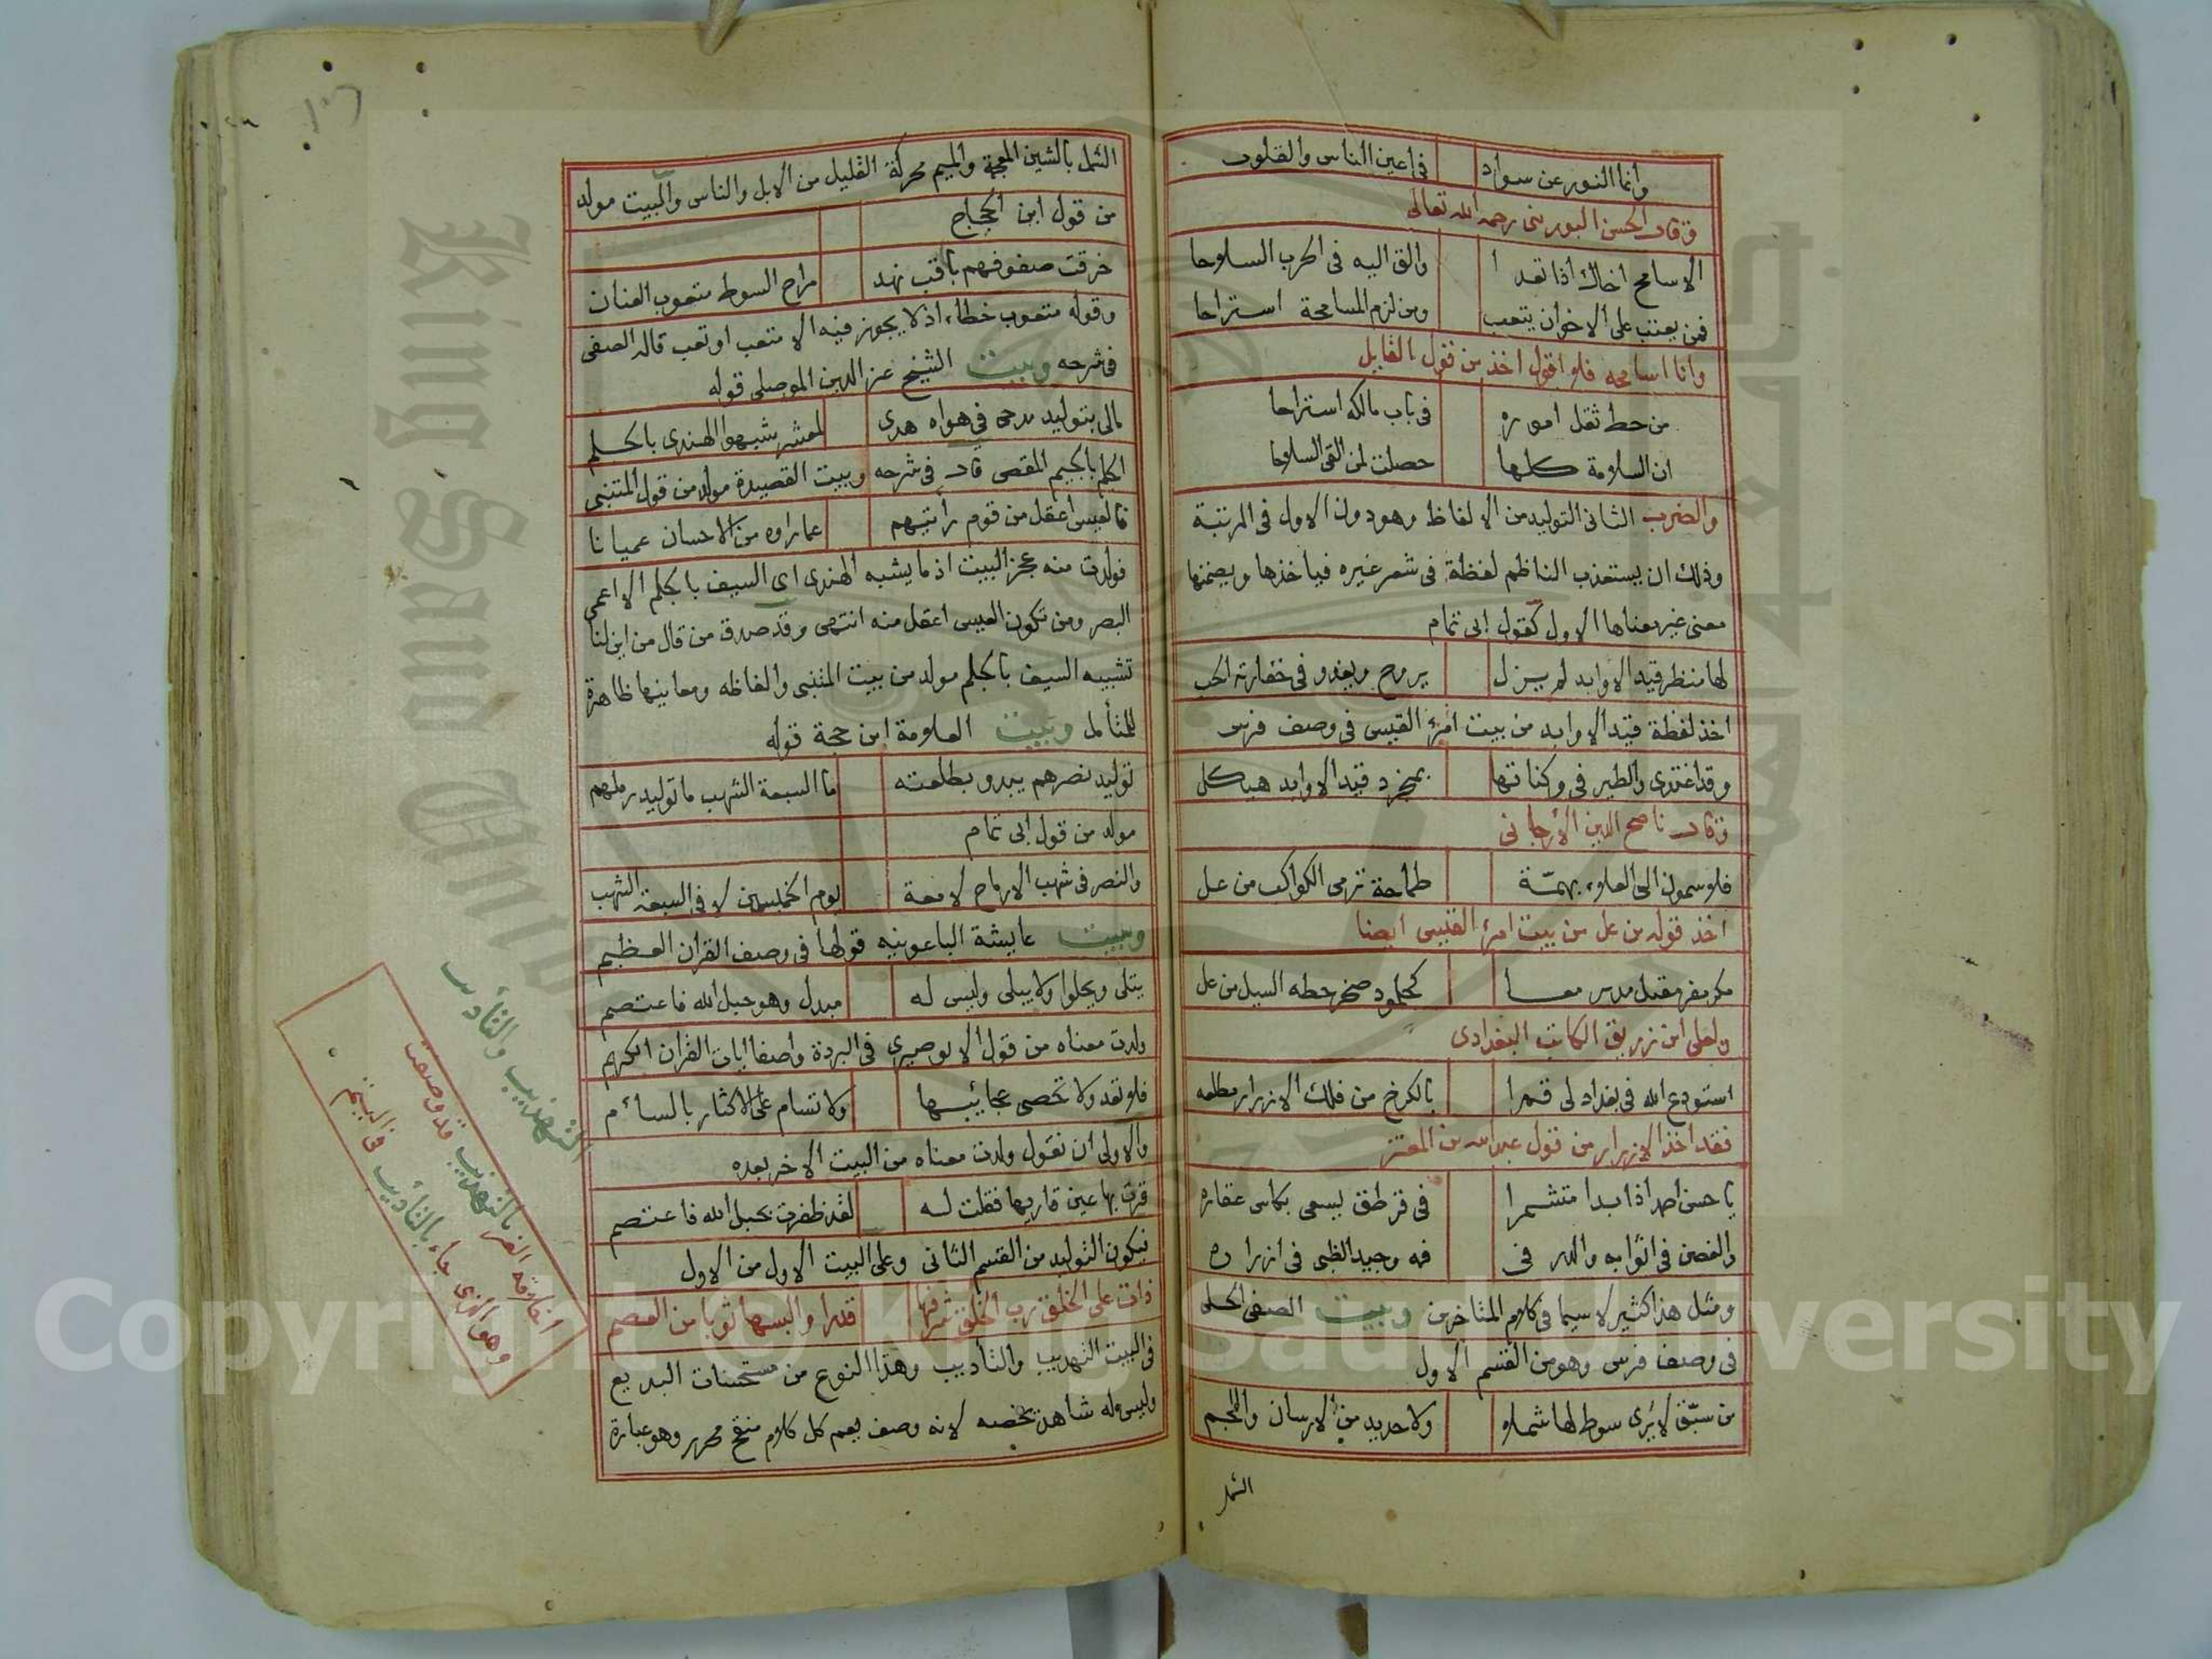 وانما النور عن سواد في اعين الناس والقلوب
وقال الحسن البوريني رحمه الله تعالى
الا سامح اخاك اذا تعدا والق اليه في الحرب السلاحا
فمن يعتب على الاخوان يتعب ومن لزم المسامحة استراحا
وانا اسامحه فلا اقول اخذ من قول القايل
من حط ثقل اموره في باب مالكه استراحا
ان السلامة كلها حصلت لمن القى السلاحا
والضرب الثاني التوليد من الالفاظ وهو دون الاول في المرتبة
وذلك ان يستعذب الناظم لفظة في شعر غيره فياخذها ويضمنها
معنى غير معناها الاول كقول ابي تمام
لها منظر قيد الاوابد لم يزل يروح ويغدو في خفارته الحب
اخذ لفظة قيد الاوابد من بيت امرئ القيس في وصف فرس
وقد اغتدي والطير في وكناتها بمنجرد قيد الاوابد هيكل
وقال ناصح الدين الأرجاني
فلا سمون الى العلاء بهمّة طماحة ترمى الكواكب من عل
اخذ قوله من عل من بيت امرئ القيس ايضا
مكر مفر مقبل مدبر معا كجلمود صخر حطه السيل من عل
ولعلى ابن زريق الكاتب البغدادى
استودع الله في بغداد لى قمرا بالكرخ من فلك الازرار مطلعه
فقد اخذ الازرار من قول عبد الله بن المعتز
يا حسن احمد اذا بدا متشمرا في قرطق يسعى بكاس عقاره
والغصن في اثوابه والدر في فمه وجيد الظبى في ازراره
ومثل هذا كثير لاسيما في كلام المتاخرين وبيت الصفي الحلى
في وصف فرس وهو من القسم الاول
من سبّق لا يُرى سوط لها شملا ولا جديد من الارسان واللجم
الشمل
الشمل بالشين المعجمة والميم محركة القليل من الابل والناس والبيت مولد
من قول ابن الحجاج
خرقت صفوفهم باقب نهد مراح السوط متعوب العنان
وقوله متعوب خطاء اذ لا يجوز فيه الا متعب او تعب قاله الصفى
في شرحه وبيت الشيخ عز الدين الموصلى قوله
مالى بتوليد مدحى في هواه هدى لمعشر شبهوا الهندى بالجلم
الجلم بالجيم المقص قال في شرحه وبيت القصيدة مولد من قول المتنبى
فالعيس اعقل من قوم رأيتهم عما راوه من الاحسان عميانا
فولدت منه عجز البيت اذ ما يشبه الهندى اى السيف بالجلم الا اعمى
البصر ومن تكون العيس اعقل منه انتهى وقد صدق من قال من اين لنا
تشبيه السيف بالجلم مولد من بيت المتنبى والفاظه ومعانيها ظاهرة
للمتأمل وبيت العلامة ابن حجة قوله
توليد نصرهم يبدو بطلعته ما السبعة الشهب ما توليد رملهم
مولد من قول ابى تمام
والنصر في شهب الارماح لامعة يوم الخميسين لا في السبعة الشهب
وبيت عايشة الباعونيه قولها في وصف القران العظيم
يتلى ويحلوا ولا يبلى وليس له مبدل وهو حبل الله فاعتصم
ولدت معناه من قول الابوصيرى في البردة واصفا ايات القران الكريم
فلا تعد ولا تحصى عجائبها ولا تسام على الاكثار بالسأم
والاولى ان نقول ولدت معناه من البيت الاخر بعده
قرت بها عين قاريها فقلت له لقد ظفرت بحبل الله فاعتصم
فيكون التوليد من القسم الثانى وعلى البيت الاول من الاول
ذات على الخلق رب الخلق شرفها قدرا والبسها ثوبا من العصم
في البيت التهذيب والتأديب وهذا النوع من مستحسنات البديع
وليس له شاهد يخصه لانه وصف يعم كل كلام منقح محرر وهو عبارة
التهذيب والتأديب
اخلاقه الغر بالتهذيب قد وصفت
وهو الذى جاء بالتأديب في اليتم